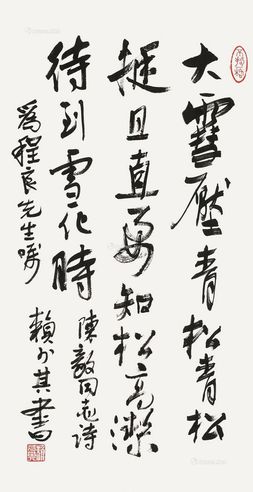 大雪壓青松青松
挺且直要知松高潔
待到雪化時
陳毅同志詩
爲程良先生嘱
賴少其書